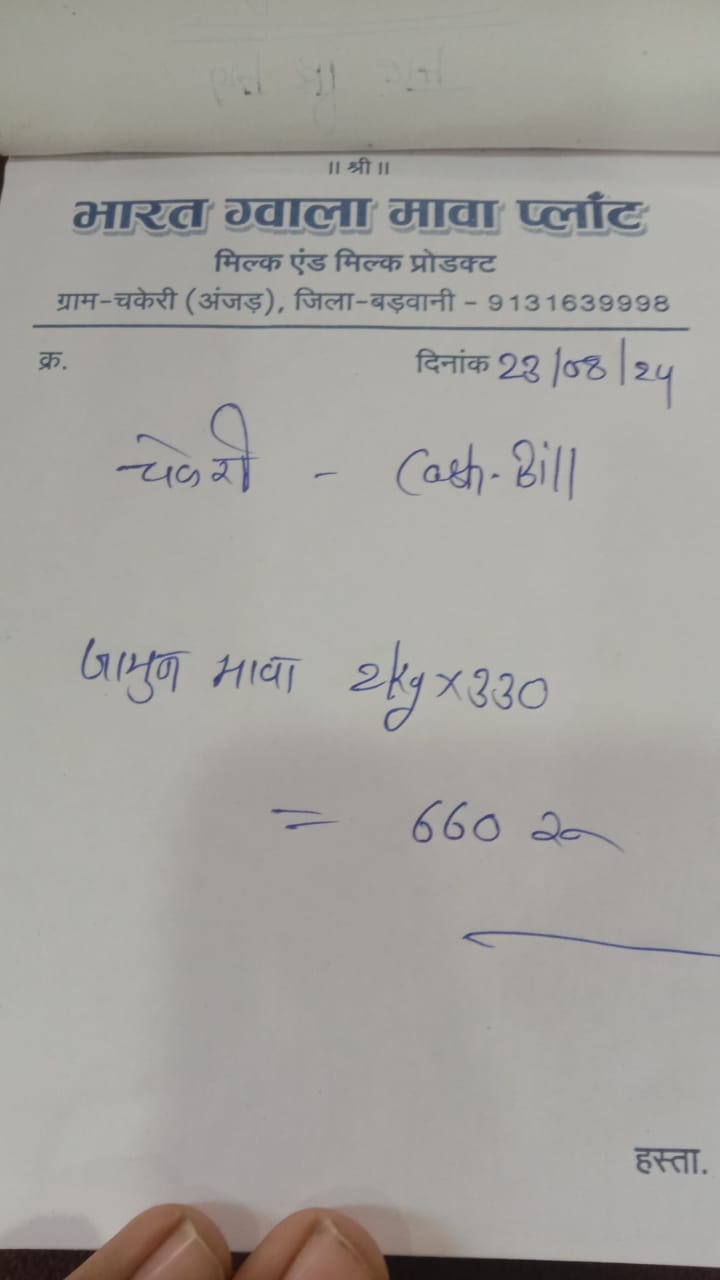 ॥ श्री ॥
भारत ग्वाला मावा प्लाँट
मिल्क एंड मिल्क प्रोडक्ट
ग्राम-चकेरी (अंजड़), जिला-बड़वानी - 9131639998
क्र. दिनांक 23/08/24
चकेरी - Cash-Bill
जामुन मावा 2kg×330
= 660 रु
हस्ता.